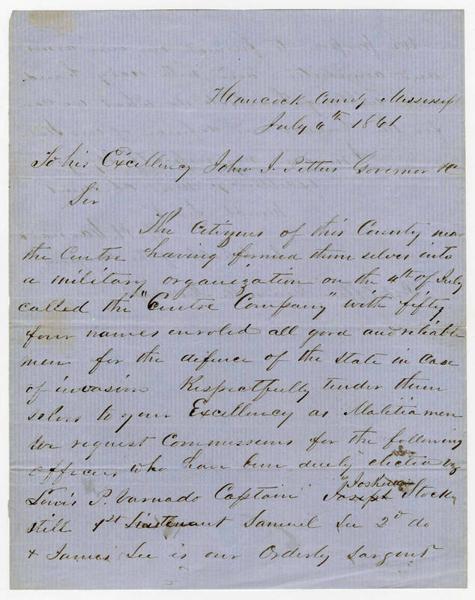 Hancock County Mississippi
July 6th 1861
To his Excellency John J. Pettus Governor &c
Sir
The Citizens of this County near
the Centre having formed them selves into
a military organization on the 4th of July
called the "Centre Company" with fifty
four names enroled all good and reliable
men for the defence of the State in case
of invasion Respectfully tender them
selves to your Excellency as Malitia men
& request Commissions for the following
officers who have been duely elected
Lewis P. Varnado Captain Joshua Stock
still 1st Lieutenant Samuel Lee 2d do
& James Lee is our Orderly Sargent